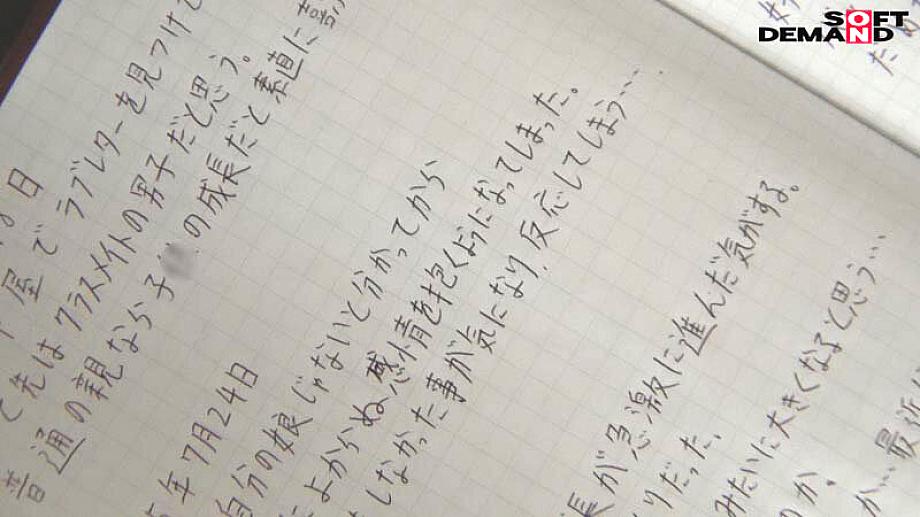 SOFT
DEMAND
日
屋でラブレターを見つけて
先はクラスメイトの男子だと思う。
普通の親なら子 の成長だと素直に
年7月24日
自分の娘じゃないと分かってから
によからぬ感情を抱くようになってしまった。
しなかった事が気になり、反応してしまう…
長が急激に進んだ気がする。
りだった。
みたいに大きくなると思う…
のか。
か…最近